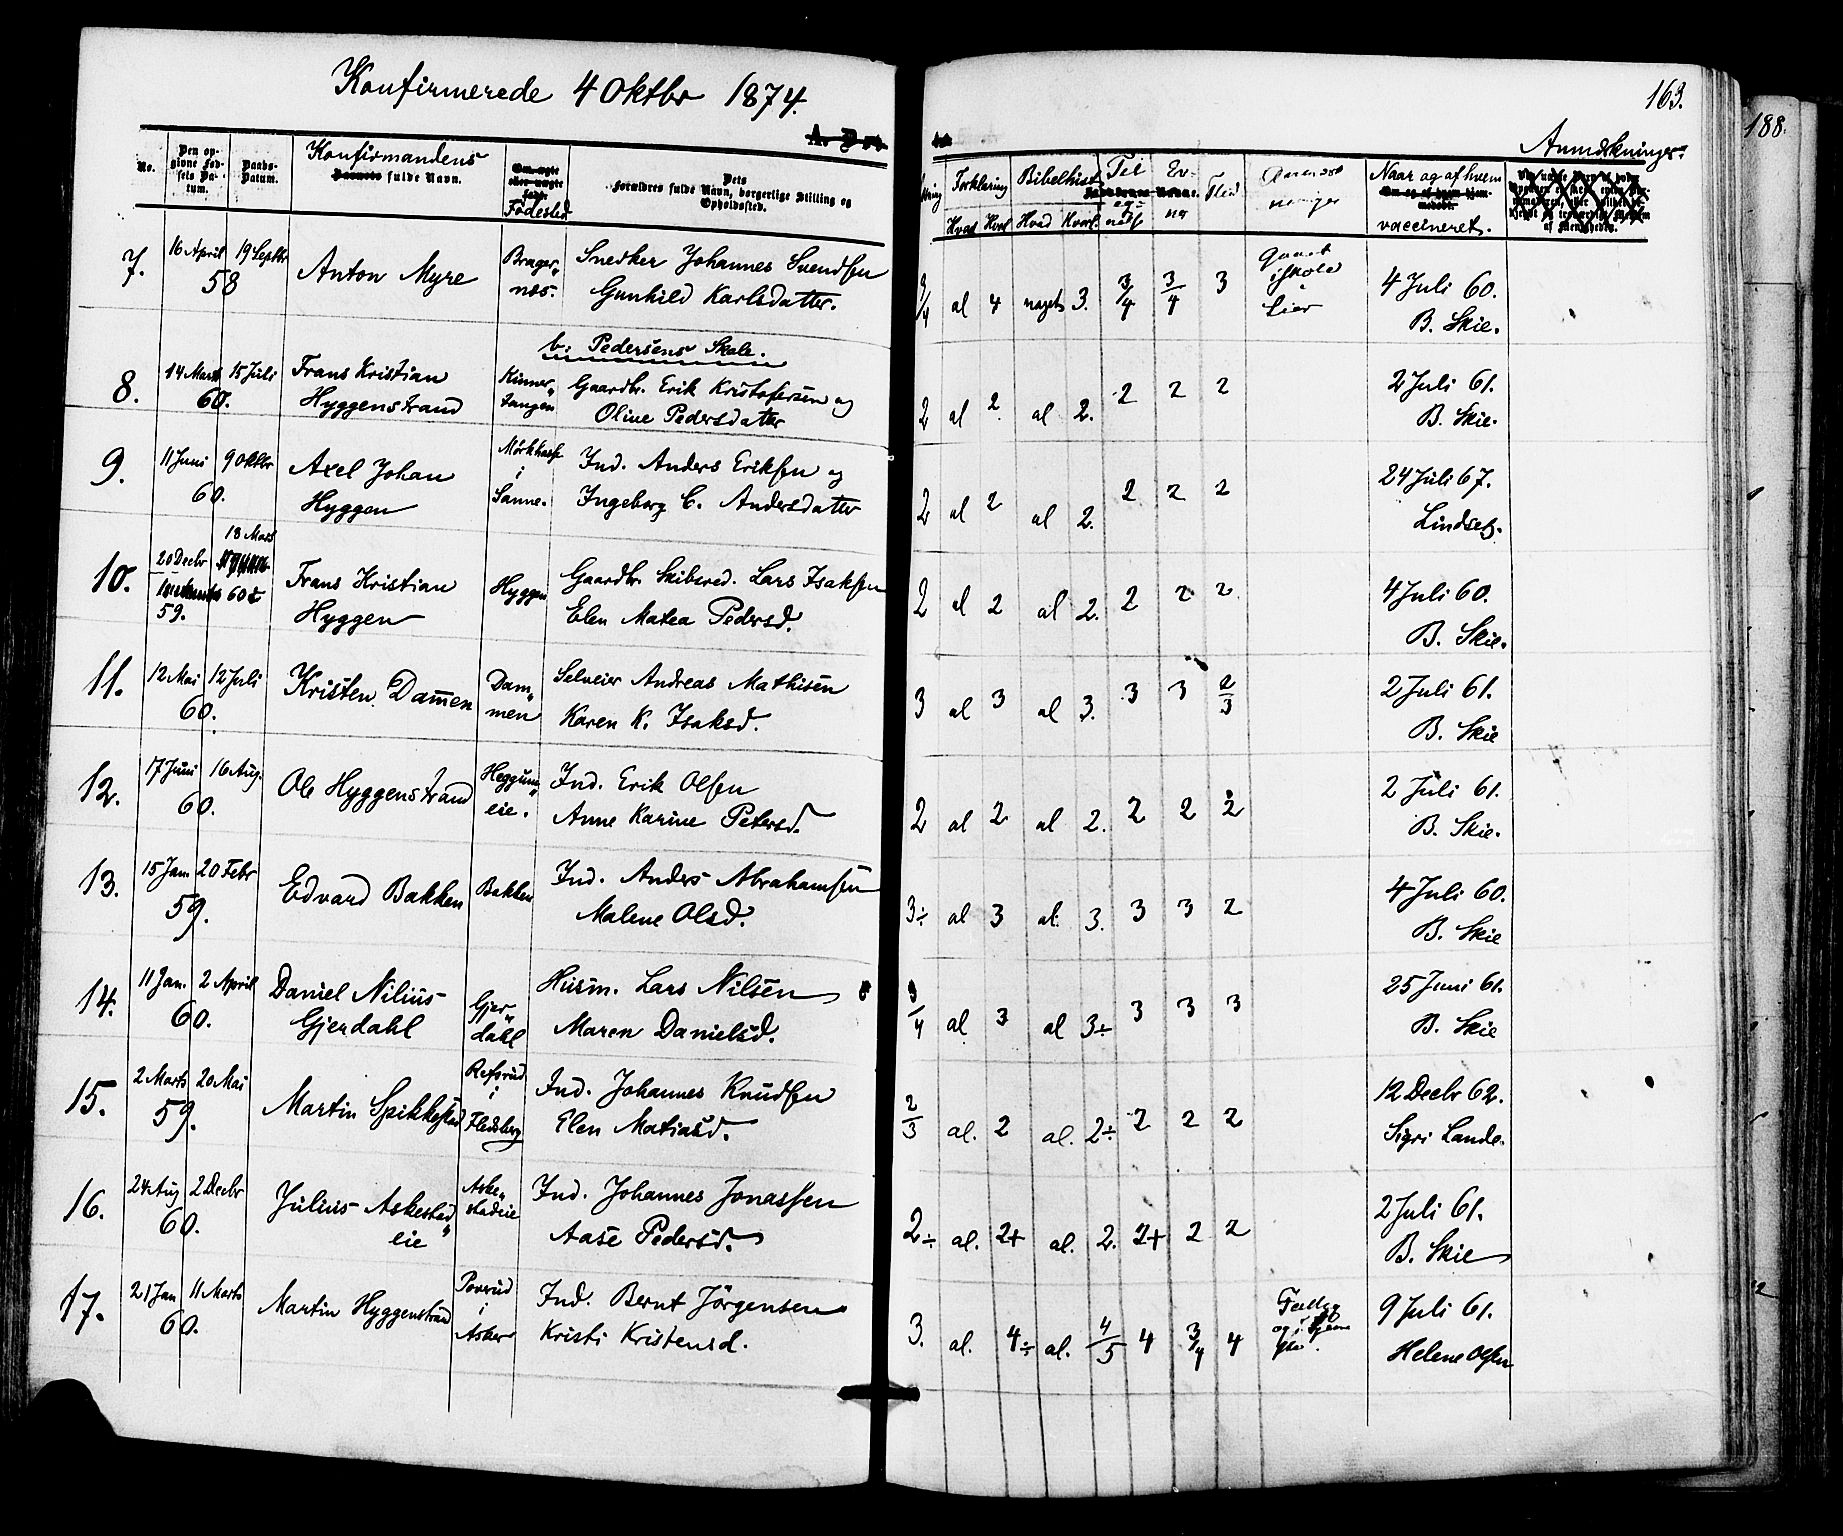 Konfirmerede 4 Oktbr 1874.
163.
188.
Anmærkninger.
No. Den opgivne Fødsels Datum. Daabs-Datum. Konfirmandens fulde Navn. Fødested Dets Forældres fulde Navn, borgerlige Stilling og Opholdssted.
Forklaring Bibelhist. Flid Naar og af hvem
Hvad Hvorl. Hvad Hvorl. vaccineret.
7. 16 April 19 Septbr 58 Anton Myre Bragernæs. Snedker Johannes Svendsen
Gunhild Karlsdatter.
3/4 al 4 noget 3. 3/4 3/4 3 Gaaet i Skole i Lier 4 Juli 60.
B. Skie.
b: Pedersens Skole.
8. 14 Marts 15 Juli 60. Frans Kristian Hyggenstrand Kinnertangen Gaardbr. Erik Kristofersen og
Oline Pedersdatter
2 al 2. al 2. 2 2 2 2 Juli 61.
B. Skie.
9. 11 Juni 9 Oktbr 60. Axel Johan Hyggen i Sanne. Ind. Anders Eriksen og
Ingeborg C. Andersdatter
2 al 2 al 2. 2 2 2 24 Juli 67.
Lindseth.
10. 20 Decbr 59. 18 Mars 60 Frans Kristian Hyggen Hyggen Gaardbr. Skibsred. Lars Isaksen
Elen Matea Pedersd.
2 al 2 al 2. 2 2 2. 4 Juli 60.
B. Skie.
11. 12 Mai 12 Juli 60. Kristen Dammen Dammen Selveier Andreas Mathisen
Karen K. Isaksd.
3 al 3 al 3. 3 3 2/3 2 Juli 61.
B. Skie
12. 17 Juni 16 Aug. 60. Ole Hyggenstrand Heggumeie. Ind. Erik Olsen
Anne Karine Petersd.
2 al 2 al 2. 2 2 2 2 Juli 61.
B. Skie.
13. 15 Jan 20 Febr 59. Edvard Bakken Bakken Ind. Anders Abrahamsen
Malene Olsd.
3÷ al 3 al. 3. 3 3 2 4 Juli 60.
B. Skie
14. 11 Jan. 2 April 60. Daniel Nilius Gjerdahl Gjerdahl Husm. Lars Nilsen
Maren Danielsd.
3/4 al 3 al 3÷ 3 3 3 25 Juni 61.
B. Skie
15. 2 Marts 20 Mai 59. Martin Spikkestad Refsrud i Flesberg Ind. Johannes Knudsen
Elen Matiasd.
2/3 al. 2 al. 2÷ 2 2 2 12 Decbr 62.
Sigri Lande.
16. 24 Aug 2 Decbr 60. Julius Askestadeie Askestadeie Ind. Johannes Jonassen
Aase Pedersd.
2÷ al. 2+ al. 2. 2+ 2 2 2 Juli 61.
B. Skie
17. 21 Jan 11 Marts 60. Martin Hyggenstrand Poverud i Asker Ind. Bernt Jörgensen
Kristi Kristensd.
3. al. 4÷ al. 4/5 4 3/4 4 9 Juli 61.
Helene Olsen